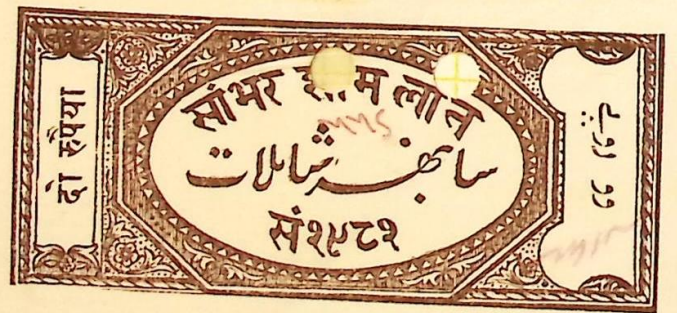 दो रुपैया
सांभर शामलात
سانبھر شاملات
सं१९८१
دو روپیہ